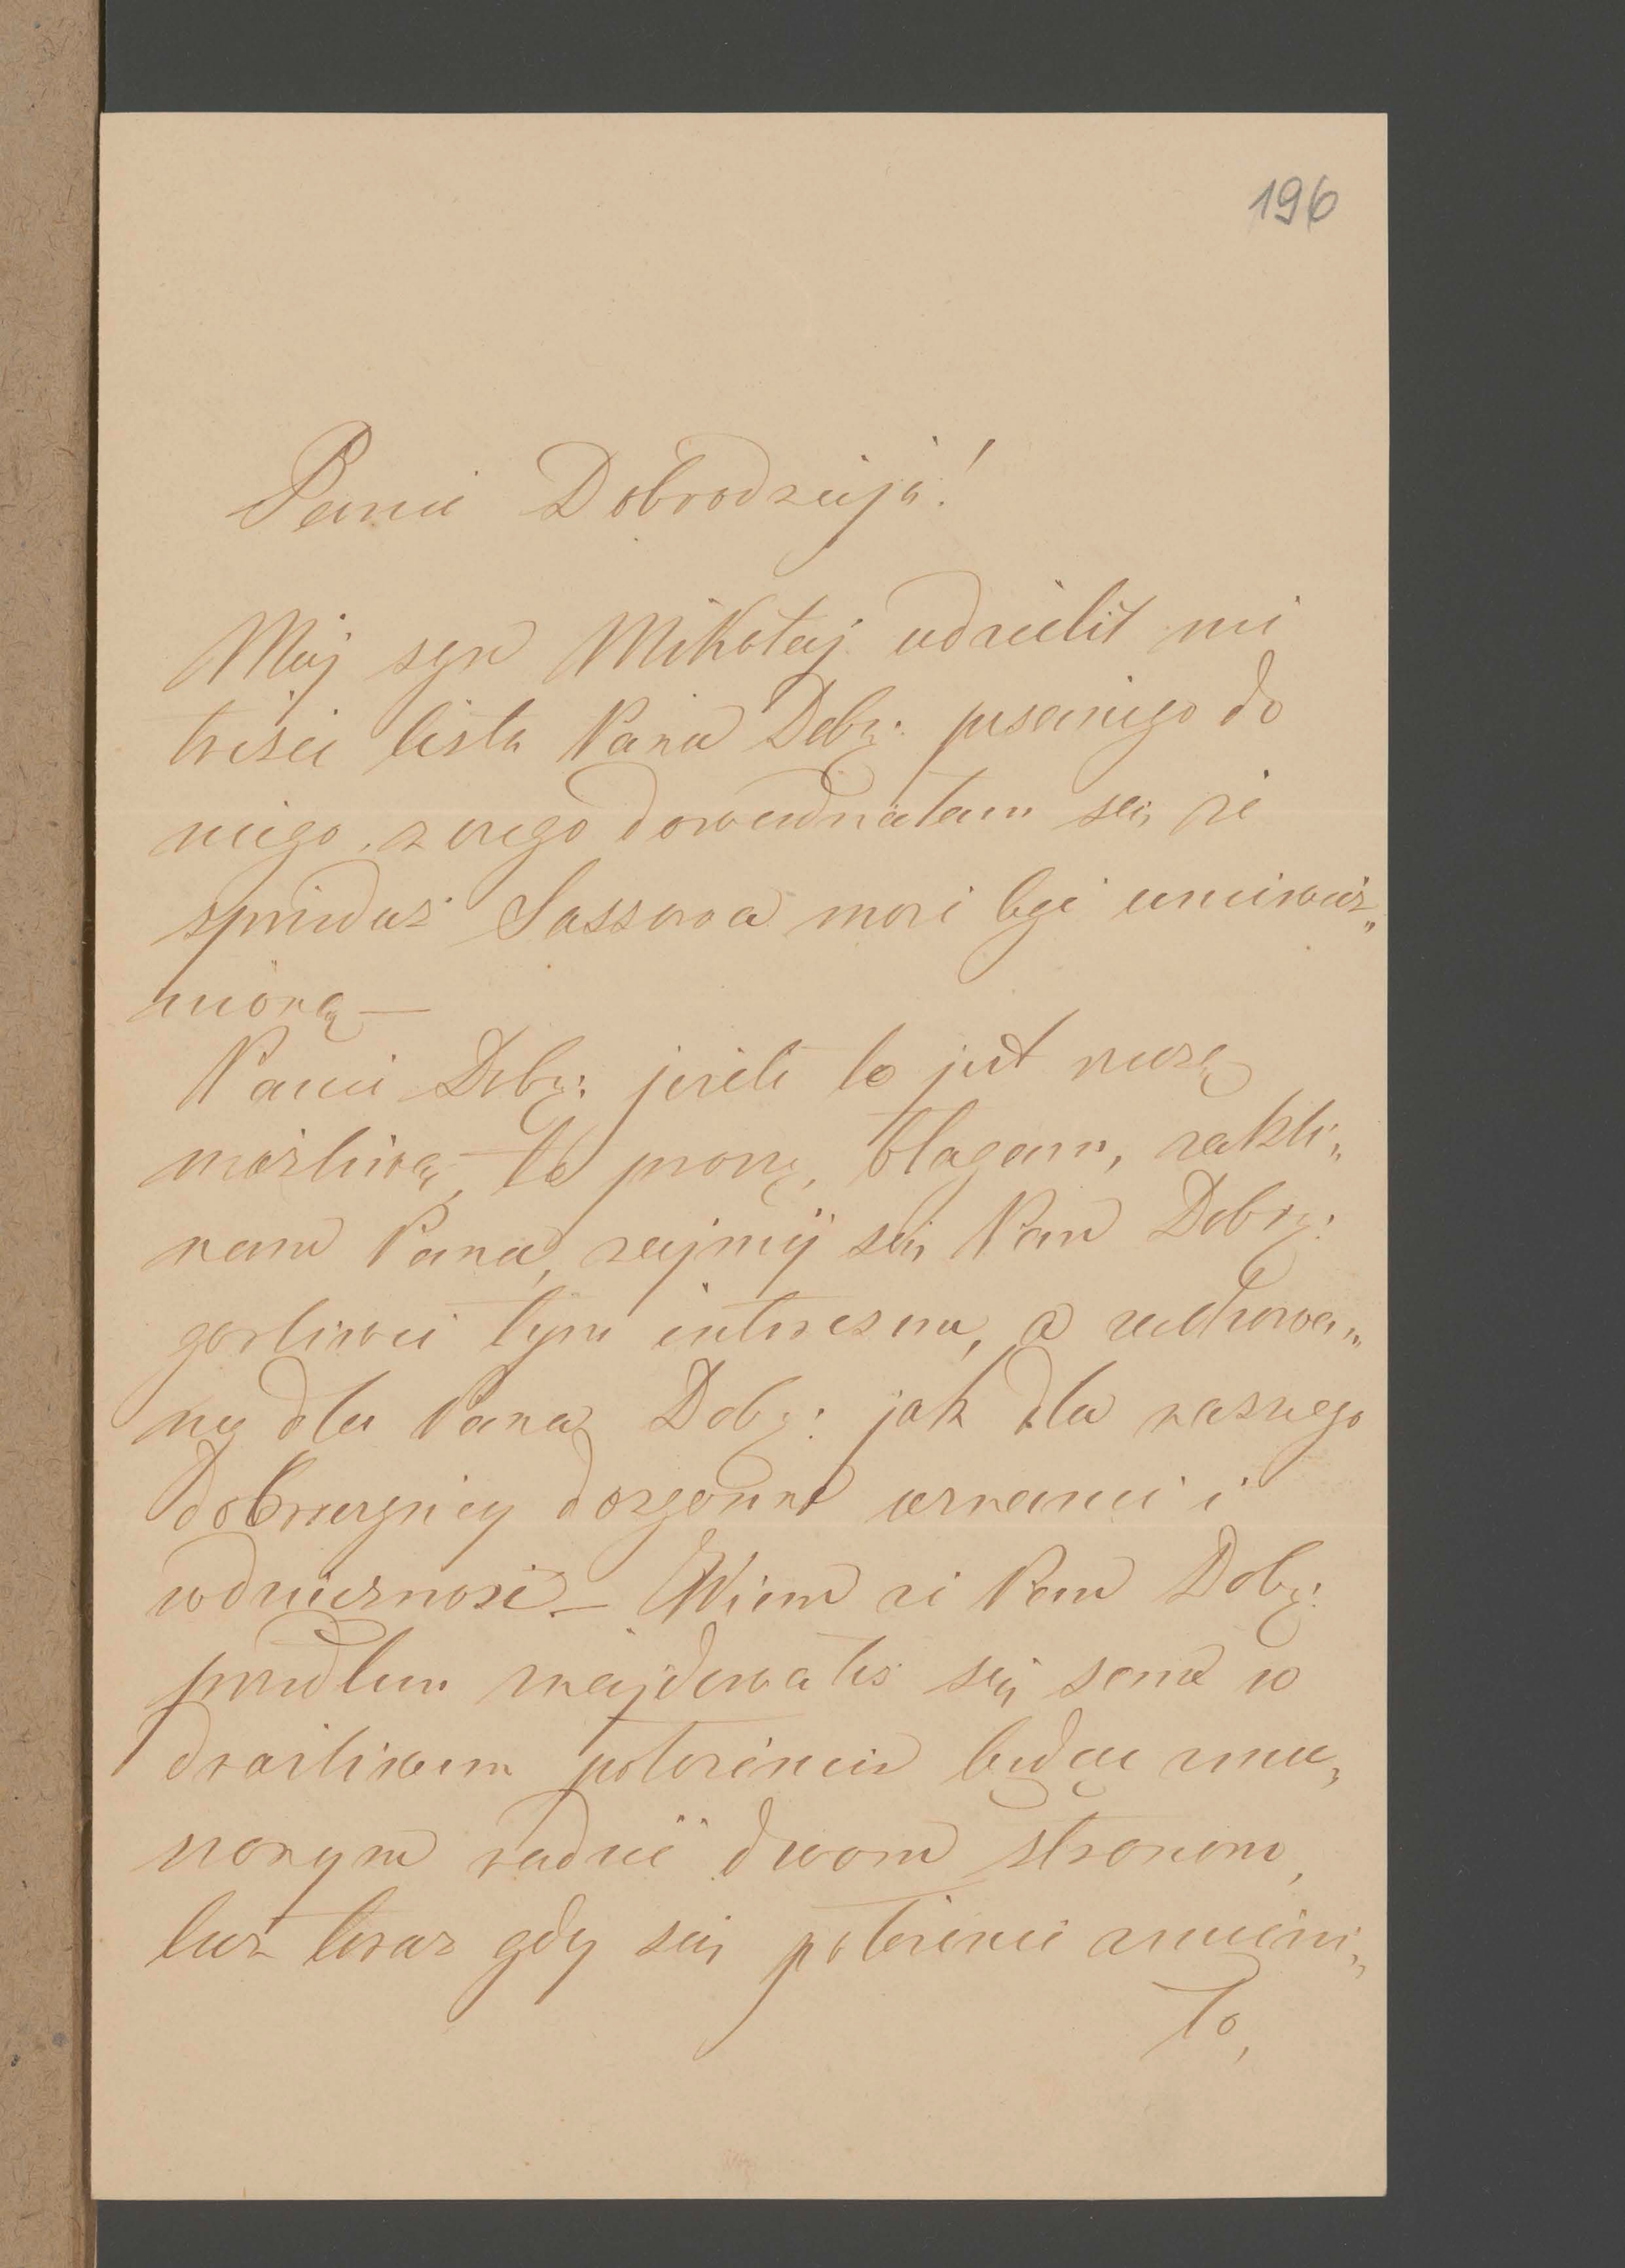 196
Panie Dobrodzieju!
Mój syn Mikołaj udzielił mi
treści listu Pana Dobr: pisanego do
niego, z czego dowiedziałam się, że
sprzedaż Sassowa może być unieważ„
nioną —
Panie Dobr: jeżeli to jest rzeczą
możliwą, to proszę, błagam, zakli„
nam Pana, zajmij się Pan Dobr:
gorliwie tym interesem, a zachowa„
my dla Pana Dobr: jak dla naszego
dobroczyńcy dozgonne uznanie i
wdzięczność — Wiem że Pan Dobr:
przedtem znajdowałeś się sam w
drażliwem położeniu będąc zmu„
szonym radzić dwom stronom,
lecz teraz gdy się położenie zmieni„
ło,